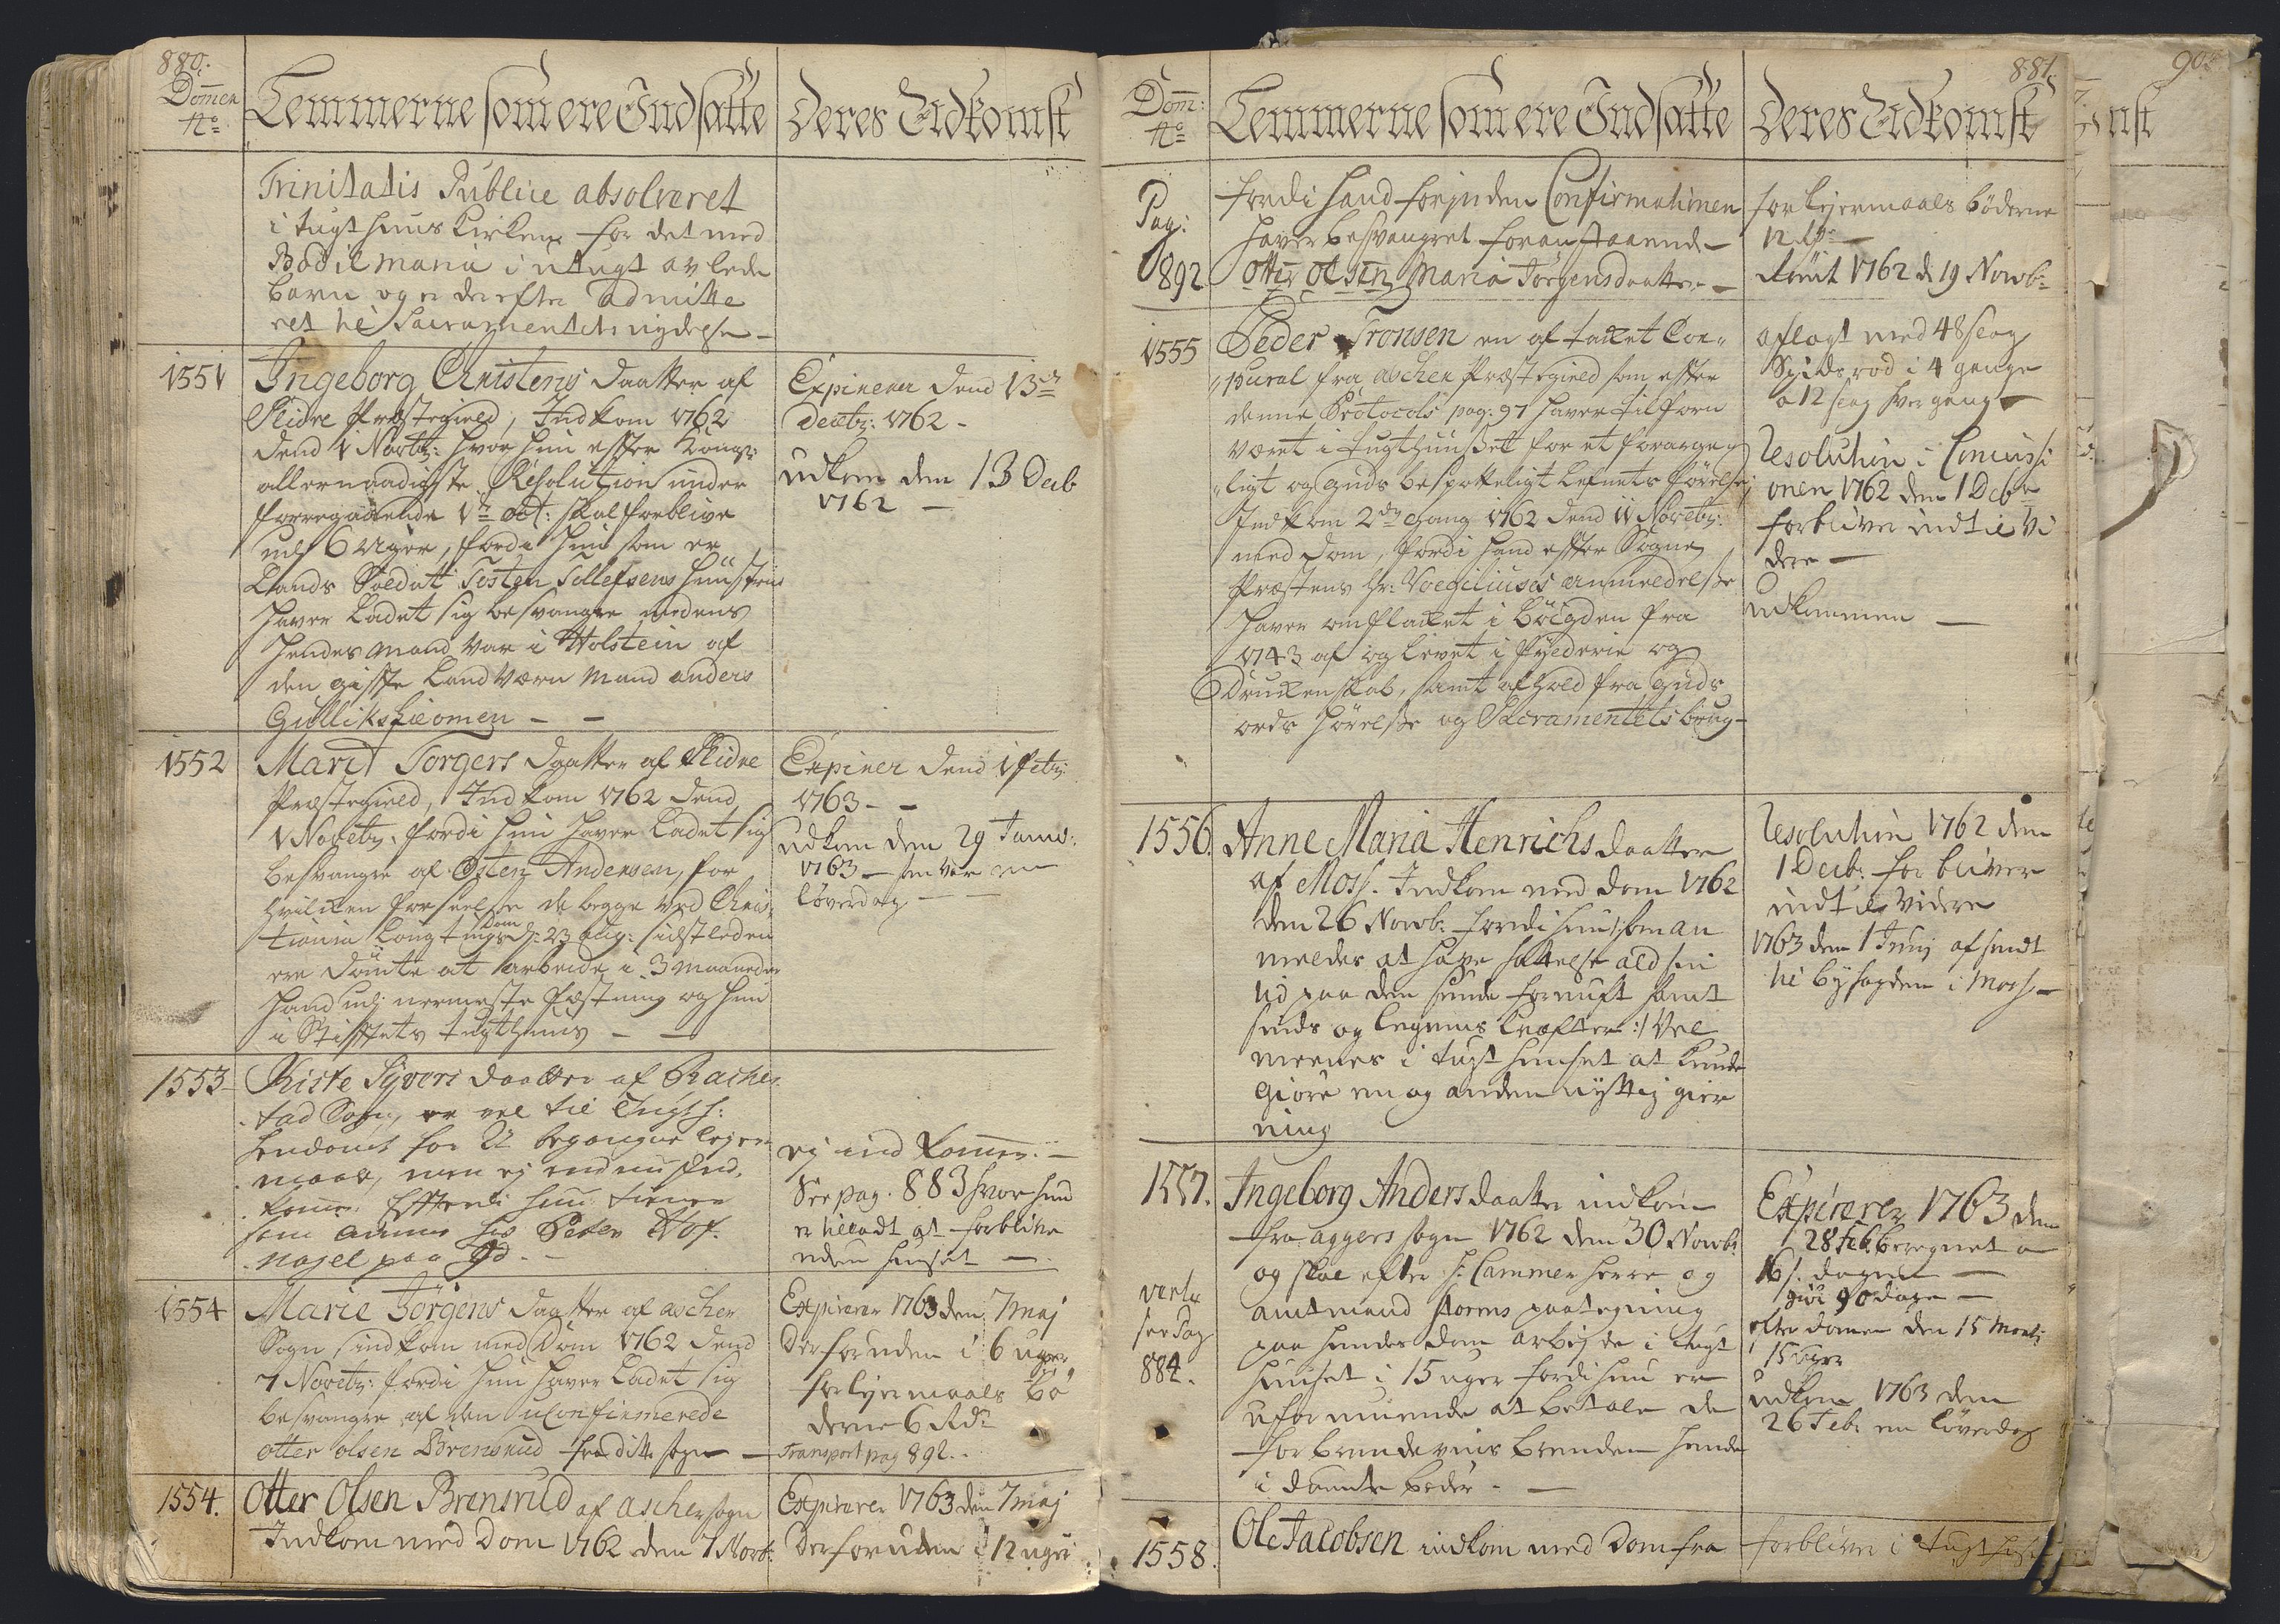 880.
Domen
No
Lemmerne som ere Indsatte
Deres Udkomst
Trinitatis Publice absolveret
i tugthuus Kirken for det med
Bodil Maria i utugt avlede
barn og er derefter admitte
ret til Sacramentets nydelse -
1551
Ingeborg Christens daatter af
Slidre Præstegield, Indkom 1762
dend 1 Novbr: hvor hun efter Kongl:
allernaadigste Resolution under
forregaaende 1de oct: skal forblive
udj 6 uger, fordi hun som er
Lands Soldat Tosten Tollefsens hustrue
haver ladet sig besvangre medens
hendes mand var i Holstein af
den gifte Land Værn Mand Anders
Gulliks
Expirerer dend 13de
Decbr: 1762 -
udkom den 13 Decb
1762 -
1552
Marit Torgers daatter af Slidre
Præstegield, Indkom 1762 dend
1 Novebr. fordi hun haver ladet sig
besvangre af Østen Andersen, for
hvilken forseelse de begge ved Chris„
tiania Laugtings Dom d: 23 aug: sidstleden
ere dømte at arbeide i 3 maaneder
hand udj nermeste Fæstning og hun
i Stiftets tugthuus - -
Expirer dend 1 febr:
1763 - -
udkom den 29 Janu:
1763 - som var en
løverdag -
1553
Kiste Syvers daatter af Rache
stad Sogn, er vel til Tugth:
hendømt for 2t begangne lejer
maal, men ej endnu Ind„
kom: Efterdi hun tiener
som amme hos Peter Hof„
nagel paa
ej ind kommen. -
See pag. 883 hvor hun
er tilladt at forblive
uden huuset -
1554
Marie Jörgens daatter af ascher
Sogn, indkom med Dom 1762 dend
7 Novebr: fordi hun haver ladet sig
besvangre af den uConfirmerede
otter olsen Brensrud fra ditto sogn -
Expirerer 1763 den 7 maj
Derforuden i 6 uger
for lejermaals bö
derne 6 Rdr
Transport pag 892..
1554.
Otter Olsen Brensrud af ascher sogn
Indkom med Dom 1762 den 7 Novb:
Expirerer 1763 den 7 maj
Derforuden i 12 uger
881.
90
Dom:
No
Lemmerne som ere Indsatte
Deres Udkomst
nst
Pag:
892
fordi hand forinden Confirmationen
haver besvangret foranstaaende
otter olsen Maria Jörgensdaatter -
for lejermaals böderne
12 -
Römt 1762 d 19 Novb:
1555
Peder Tronsen en af taket Cor„
„pural fra ascher Præstegield som efter
denne Protocols pag: 97 haver tilforn
været i tugthuuset for et forarge„
„ligt og Guds bespotteligt Lefnets förelse;
Indkom 2den gang 1762 dend 11 Novebr:
med Dom, fordi hand efter Sogne
Præstens Hr: anmeldelse
haver omflaket i böigden fra
1743 af og levet i og
Druckenskab, samt afhold fra Guds
ords hörelse og Sacramentets brug -
aflagt med 48 slag
Spidsrod i 4 gange
a 12 slag hver gang -
Resolution i
1762 den 1 Decbr
forbliver indtil Vi
dere -
udkommen -
1556.
Anne Maria Henrichs daatter
af Moss. Indkom med Dom 1762
den 26 Novb: fordi hun /:som an
meldes at have hattelse ald sin
tid paa den sunde fornuft samt
sinds og legems Kræfter:/ Vel
meenes i tugt huuset at kunde
giöre en og anden nyttig gier
ning
Resolution 1762 den
1 Decb: forbliver
indtil Videre
1763 den 1 Junj afsendt
til byfogden i Moss -
1557.
Ingeborg Anders daatter indkom
fra aggers sogn 1762 den 30 Novbr
og skal efter H: Cammerherre og
amtmand Storms paategning
paa hendes Dom arbejde i tugt
huuset i 15 uger fordi hun er
uformuende at betale de
for brendeviins brenden hende
i dömte böder - -
see Pag
884.
Expirerer 1763 den
28 Feb: beregnet a
16 s. dagen -
giör 90 dage -
efter domen den 15 Marti
15 uger
udkom 1763 den
26 Feb: en löverdag
1558.
Ole Jacobsen indkom med Dom fra
forbliver i tugthuset